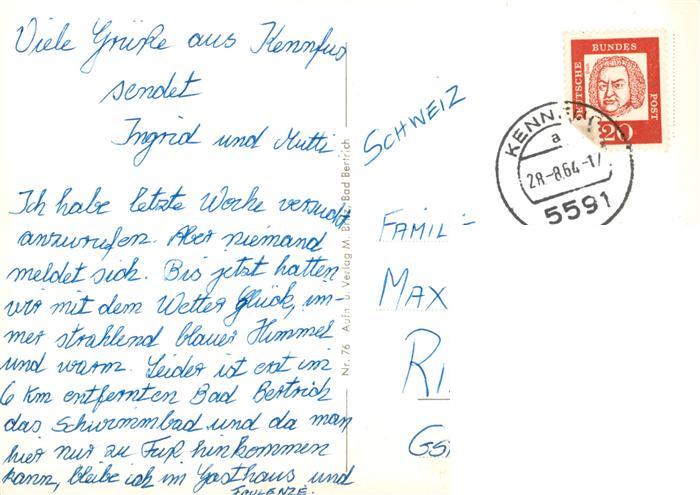 Viele Grüße aus Kennfus
sendet
Ingrid und Mutti
Ich habe letzte Woche versucht
anzurufen. Aber niemand
meldet sich. Bis jetzt hatten
wir mit dem Wetter Glück, im-
mer strahlend blauer Himmel
und warm. Leider ist erst im
6 km entfernten Bad Bertrich
das Schwimmbad und da man
hier nur zu Fuß hinkommen
kann, bleibe ich im Gasthaus und
FAULENZE.
Nr. 76 Aufn. u. Verlag M. Bad Bertrich
SCHWEIZ
FAMIL
MAX
RI
GS
DEUTSCHE BUNDES POST
20
KENN
a
28-8.64-17
5591